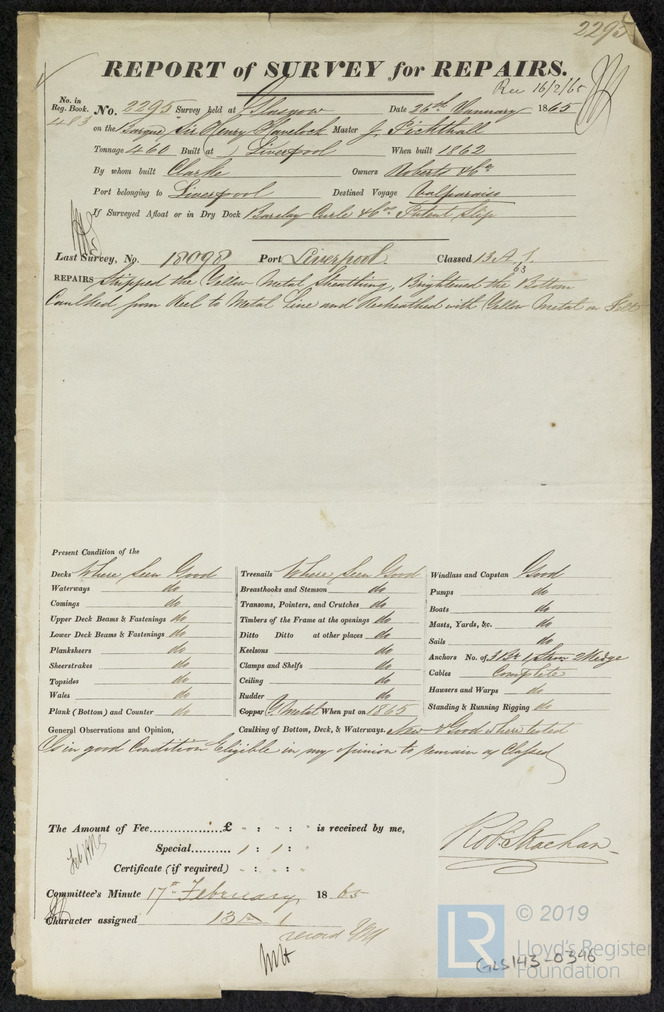 2295
REPORT of SURVEY for REPAIRS.
Rec 16/2/65
No. in Reg. Book. 483
No. 2295 Survey held at Glasgow Date 26th January 1865
on the Barque Sir Henry Havelock Master J. Pickthall
Tonnage 460 Built at Liverpool When built 1862
By whom built Clarke Owners Roberts & Co
Port belonging to Liverpool Destined Voyage Valparaiso
If Surveyed Afloat or in Dry Dock Barclay Curle & Cos Patent Slip
Last Survey, No. 18098 Port Liverpool Classed 13 A 1.
63
REPAIRS Stripped the Yellow Metal Sheathing, Brightened the Bottom
Caulked from Keel to Metal Line and Resheathed with Yellow Metal on Felt
Present Condition of the
Decks Where Seen Good Treenails Where Seen Good Windlass and Capstan Good
Waterways do Breasthooks and Stemson do Pumps do
Comings do Transoms, Pointers, and Crutches do Boats do
Upper Deck Beams & Fastenings do Timbers of the Frame at the openings do Masts, Yards, &c. do
Lower Deck Beams & Fastenings do Ditto Ditto at other places do Sails do
Planksheers do Keelsons do Anchors No. of 3 Br 1 Stm 2 Kedge
Sheerstrakes do Clamps and Shelfs do Cables Complete
Topsides do Ceiling do Hawsers and Warps do
Wales do Rudder do Standing & Running Rigging do
Plank (Bottom) and Counter do Copper Y. Metal When put on 1865
General Observations and Opinion, Caulking of Bottom, Deck, & Waterways. New & Good where tested
Is in good Condition Eligible in my opinion to remain as Classed
The Amount of Fee £ " : " : " is received by me,
Special 1 : 1 :
Certificate (if required) " : " :
Robt Strachan
Committee's Minute 17th February 1865
Character assigned 13 A 1
record YM
© 2019
LR
Lloyd's Register
Foundation
GLS143-0346